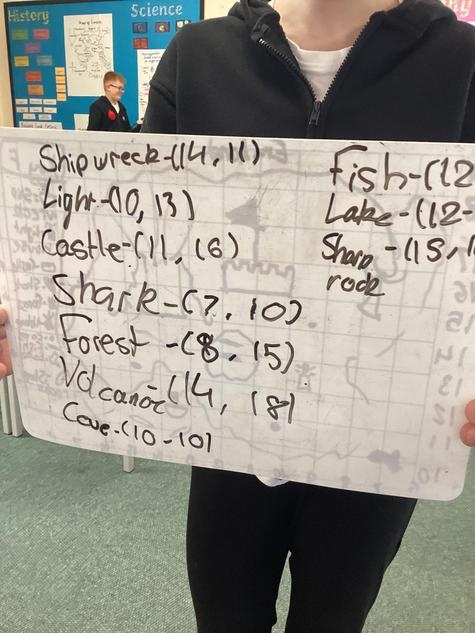 History
Science
Shipwreck-(14, 11)
Light-(10, 13)
Castle-(11, 16)
Shark-(7, 10)
Forest-(8, 15)
Volcanoe-(14, 18)
Cave-(10-10)
Fish-(12
Lake-(12-
Sharp -(15, 1
rock